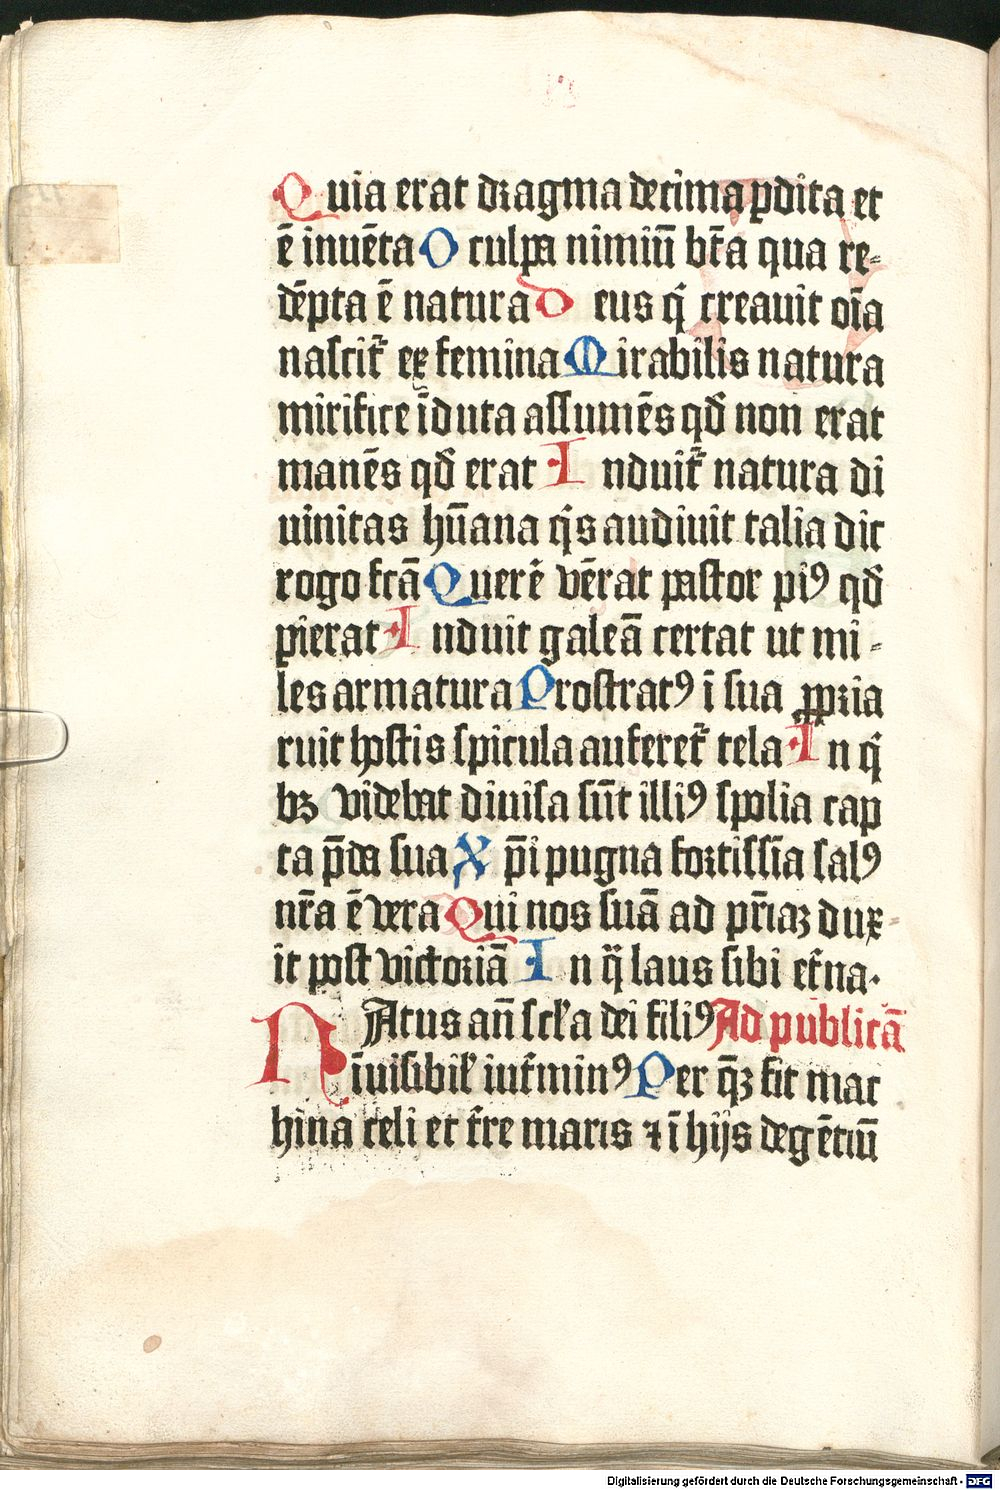 Quia erat dragma decima ꝑdita et
ē inuēta O culpa nimiū bt̄a qua re⸗
dēpta ē natura Deus qͥ creauit oīa
nascit᷑ ex femina Mirabilis natura
mirifice īduta assumēs qđ non erat
manēs qđ erat Induit᷑ natura di
uinitas hūana qͥs audiuit talia dic
rogo fcā Querē vēnerat pastor piꝰ qđ
ꝑierat Induit galeā certat ut mi⸗
les armatura Prostratꝰ ī sua ꝓpria
ruit hostis spicula auferēt᷑ tela In qͥ
bꝫ videbat diuisa sūt illiꝰ spolia cap
ta p̄da sua Xp̄i pugna fortissīa salꝰ
nr̄a ē vera Qui nos suā ad pr̄iaꝫ dux⸗
it post victoriā In qͣ laus sibi et̄na.
NAtus an̄ scl̄a dei filiꝰ Ad publicā
īuisibil̓ int̄minꝰ Per q̄ꝫ fit mac
hina celi et t̄re maris ⁊ ī hijs degētiū
Digitalisierung gefördert durch die Deutsche Forschungsgemeinschaft - DFG